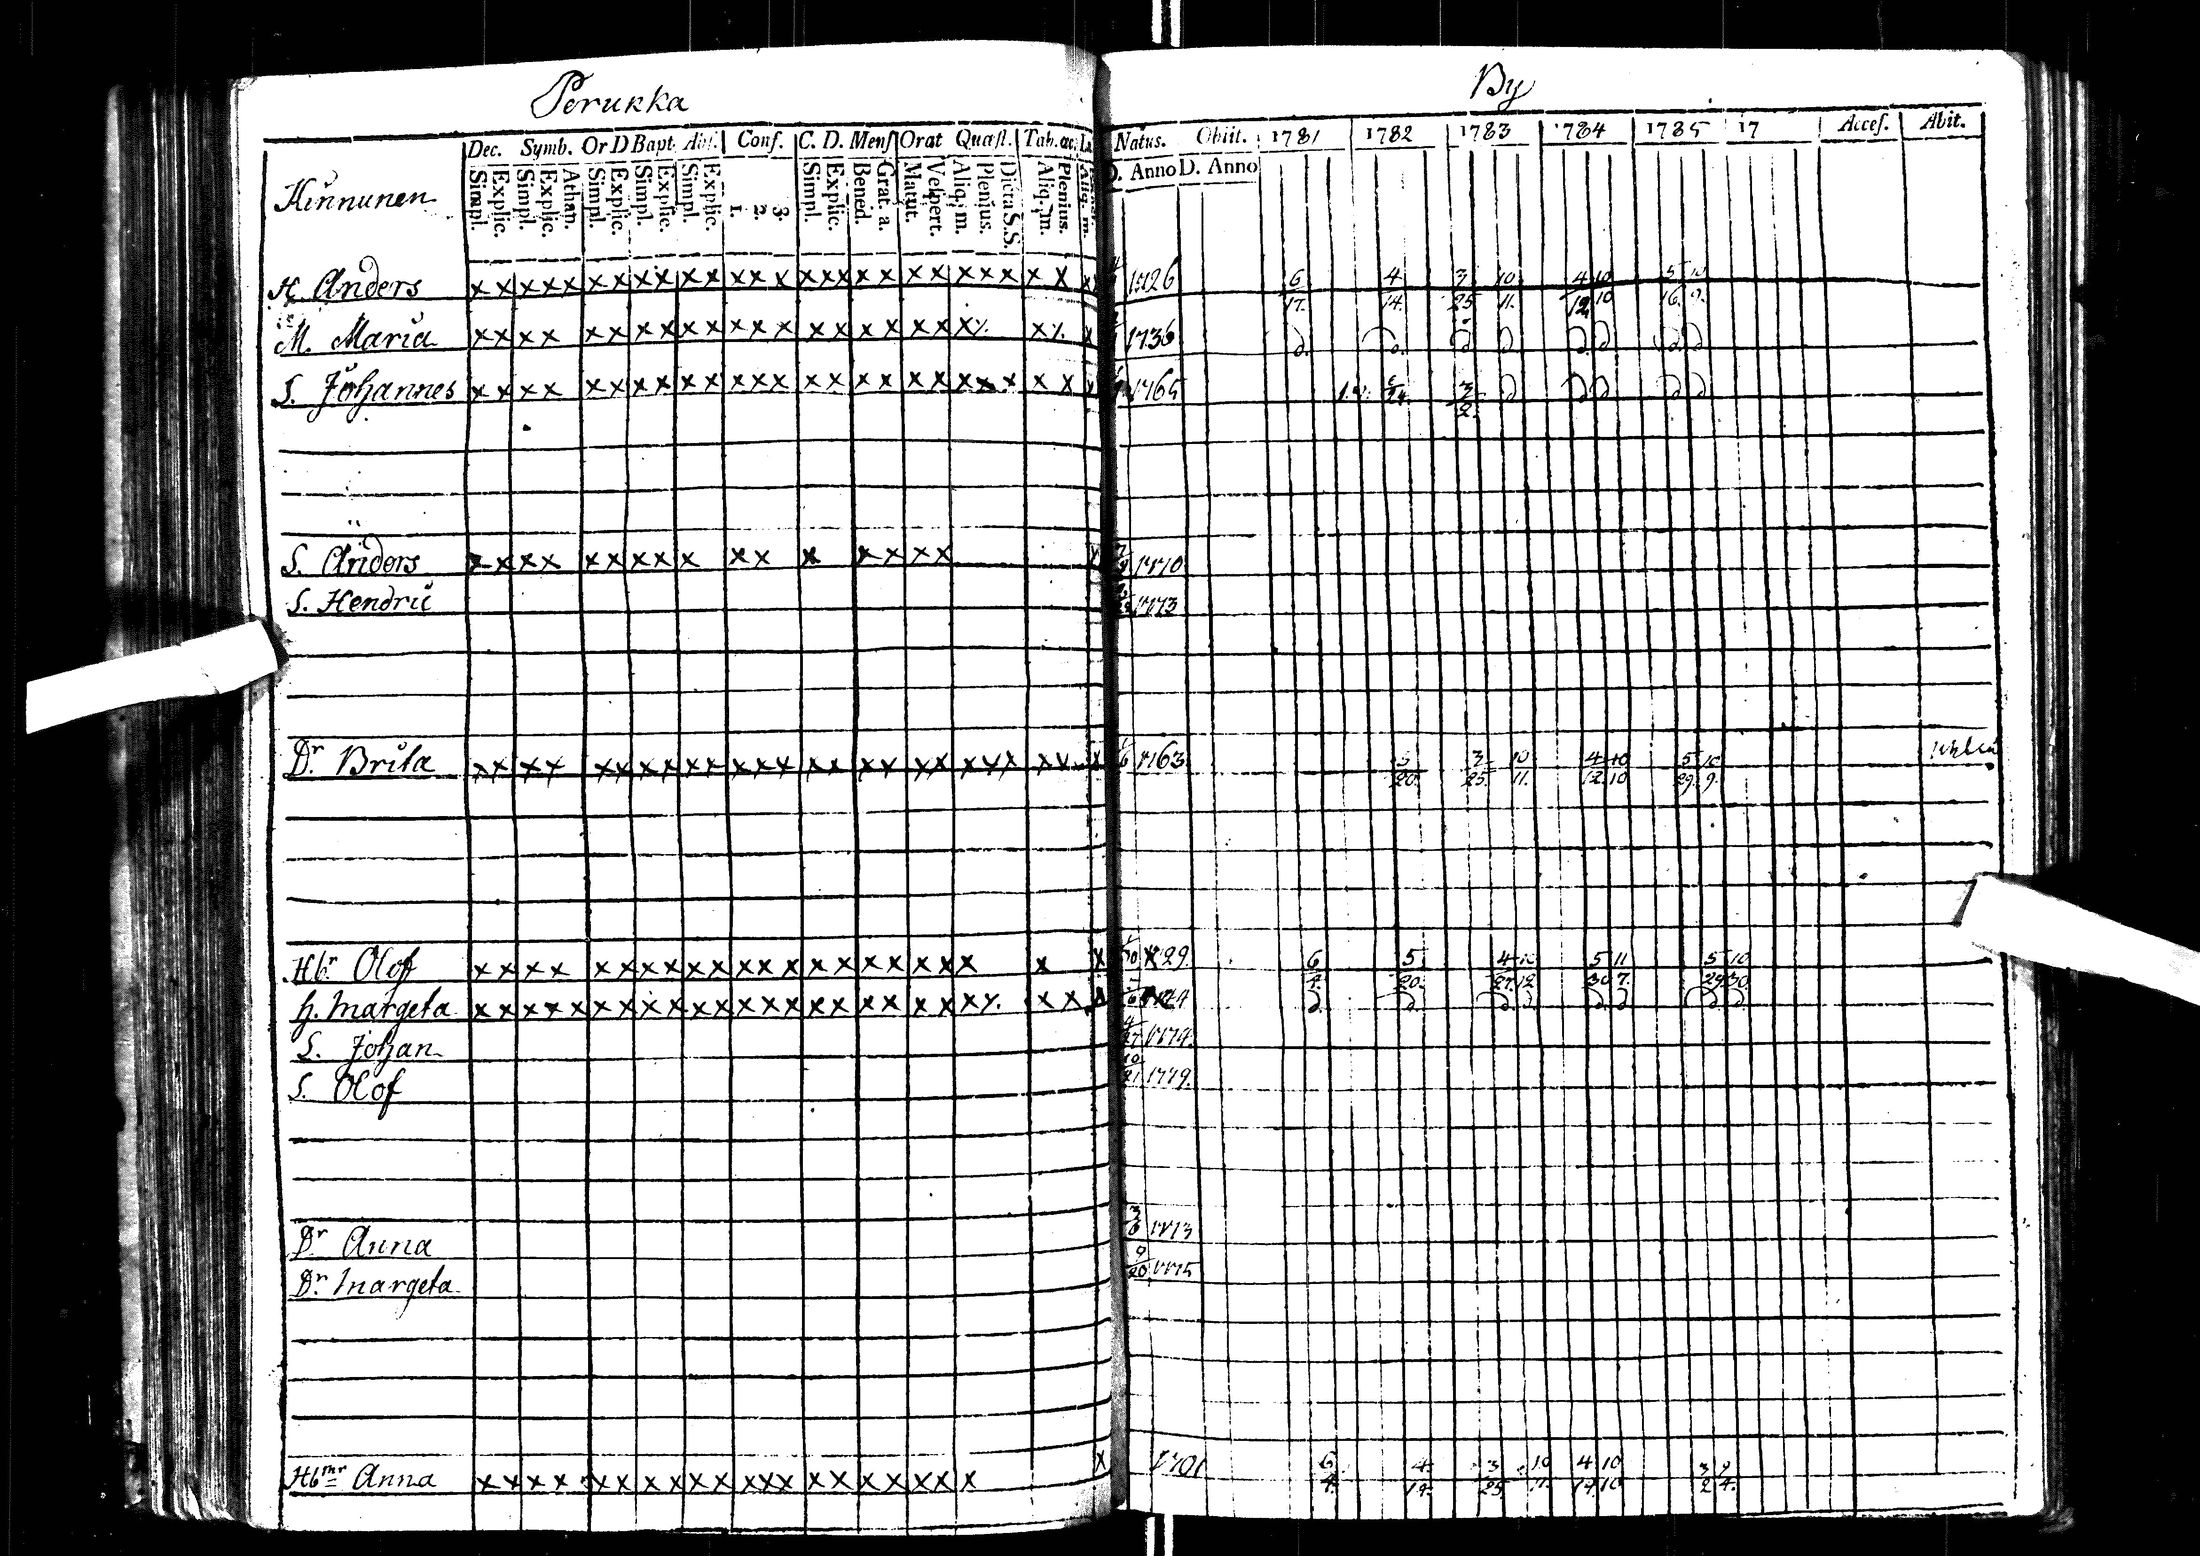 Perukka By
Dec. Symb. Or D Bapt. Abs. Conf. C. D. Mens Orat Quæst. Tab. œc. Natus. Obiit. 1781 1782 1783 1784 1785 17 Access. Abit.
Hinnunen Simpl. Explic. Simpl. Explic. Athan. Simpl. Explic. Simpl. Explic. Simpl. Explic. 1. 2. 3. Simpl. Explic. Bened. Grat. a. Matut. Vespert. Aliq; m. Plenius. Dicta S.S. Aliq; m. Plenius. Aliq. m. D. Anno D. Anno
H. Anders x x x x x x x x x x x x x x x x x x x x x x x x x x 1726 6/17. 4/14. 3/25 10./11. 4/12 10/10 5/16. 10/9.
M. Maria x x x x x x x x x x x x x x x x x x x x x x 1736
S. Johannes x x x x x x x x x x x x x x x x x x x x x x x x x 1765 3/2.
S. Anders x x x x x x x x x x x x x x x x 1770
S. Hendric 1773
Dr. Brita x x x x x x x x x x x x x x x x x x x x x x x x x 1763 5/20. 3/25. 10/11. 4/12 10/10 5/29. 10/9.
Hbr Olof x x x x x x x x x x x x x x x x x x x x x x x 29 6/4. 5/20. 5/30 11/7. 5/29 10/30.
H. Margeta x x x x x x x x x x x x x x x x x x x x x x x x
S. Johan 1774.
S. Olof 10/21 1779.
Dr. Anna 3/6 1773
Dr. Margeta 9/20 1775
Hbmr Anna x x x x x x x x x x x x x x x x x x x x x x 1701 6/4. 4/14. 3/25 10/11. 4/12 10/10 3/2 9/4.